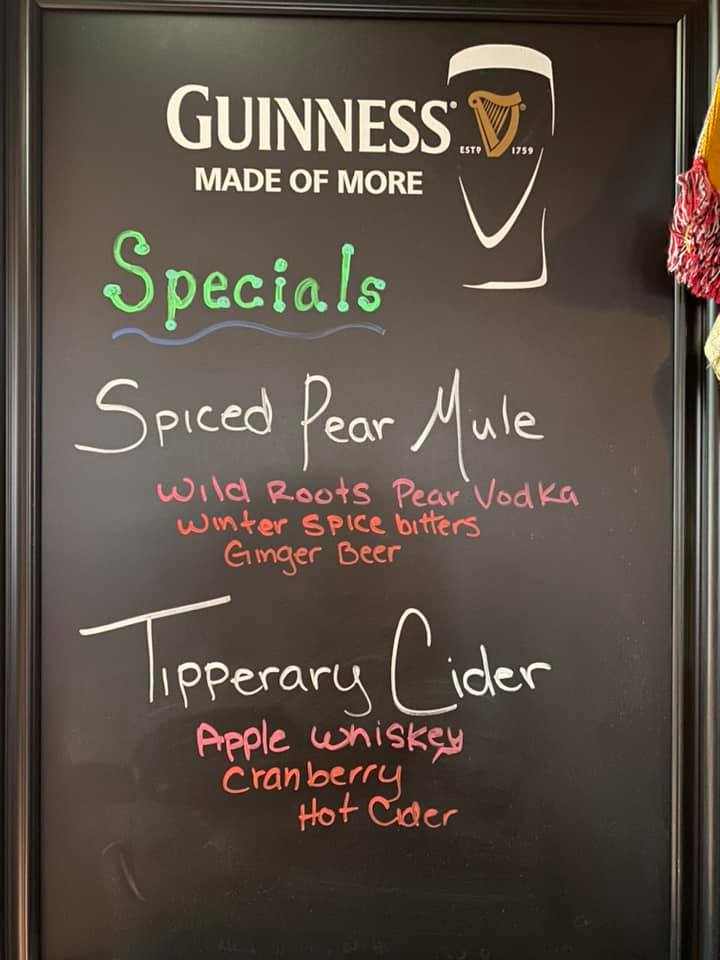 GUINNESS®
ESTD 1759
MADE OF MORE
Specials
Spiced Pear Mule
Wild Roots Pear Vodka
Winter Spice bitters
Ginger Beer
Tipperary Cider
Apple Whiskey
Cranberry
Hot Cider